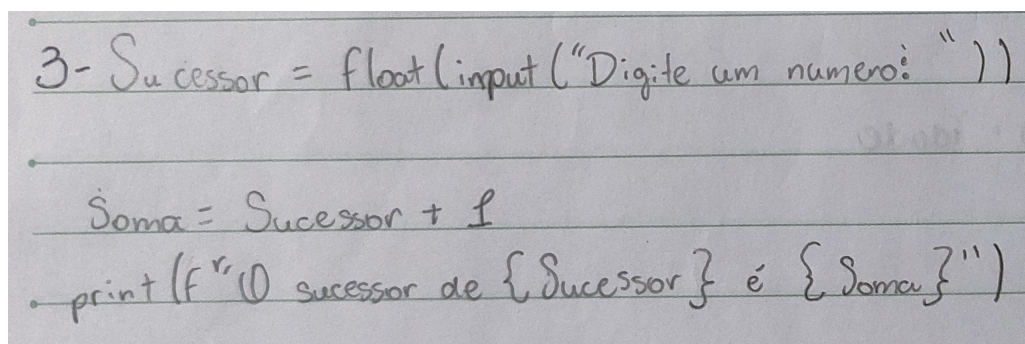 3- Sucessor = float(input("Digite um numero: "))
Soma = Sucessor + 1
print(f"O sucessor de {Sucessor} é {Soma}")